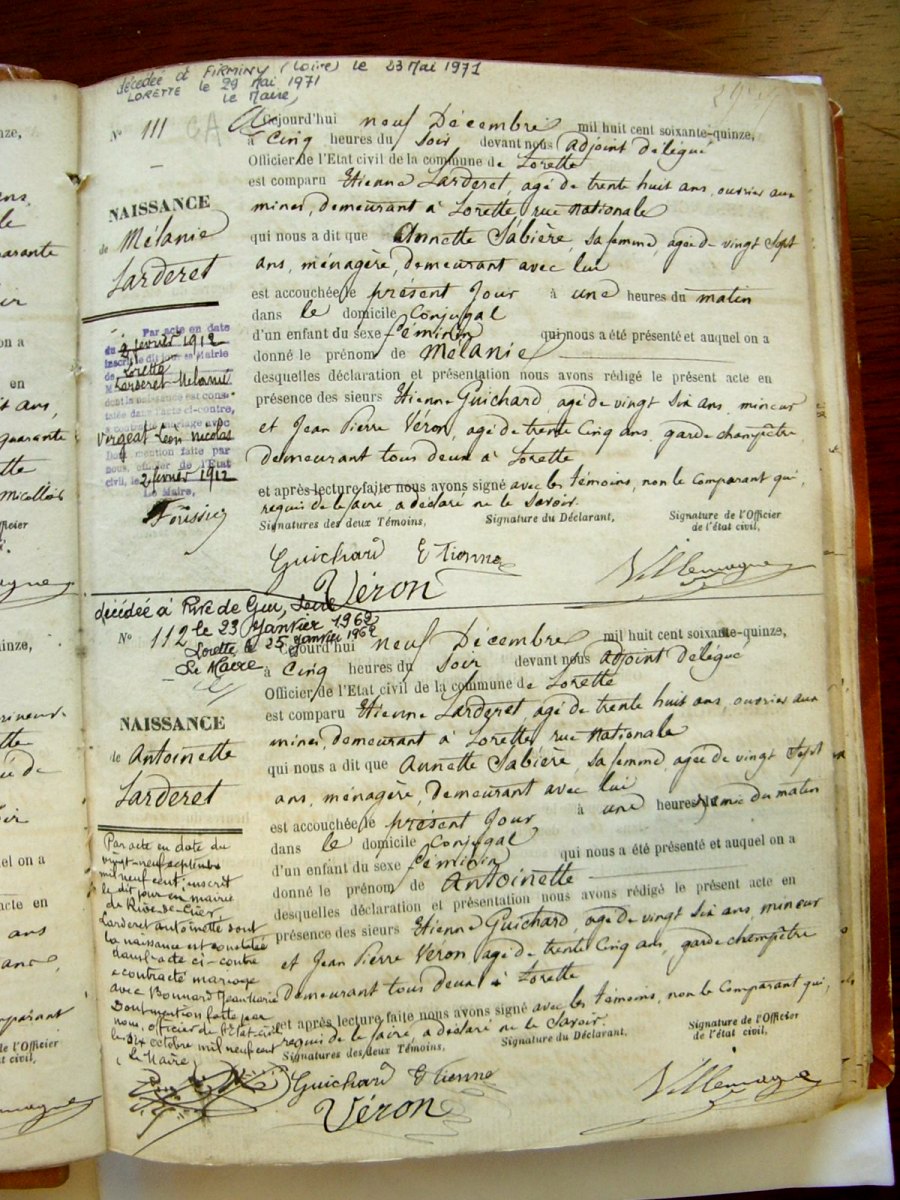 décédée à FIRMINY (Loire) le 23 Mai 1971
LORETTE le 29 Mai 1971
le Maire,
N° 111
Cejourd'hui neuf Décembre mil huit cent soixante-quinze,
à Cinq heures du Soir devant nous adjoint délégué
Officier de l'Etat civil de la commune de Lorette
est comparu Etienne Larderet, agé de trente huit ans, ouvrier aux
mines, demeurant à Lorette, rue Nationale
qui nous a dit que Annette Sabière, sa femme, agée de vingt Sept
ans, ménagère, demeurant avec lui
est accouchée le présent Jour à une heures du matin
dans le domicile Conjugal
d'un enfant du sexe féminin qui nous a été présenté et auquel on a
donné le prénom de Mélanie
desquelles déclaration et présentation nous avons rédigé le présent acte en
présence des sieurs Etienne Guichard, agé de vingt Six ans, mineur
et Jean Pierre Véron, agé de trente Cinq ans, garde champêtre
demeurant tous deux à Lorette
et après lecture faite nous avons signé avec les témoins, non le Comparant qui,
requis de le faire, a déclaré ne le Savoir.
Signatures des deux Témoins, Signature du Déclarant, Signature de l'Officier
de l'état civil,
Guichard Etienne
Véron
Villemagne
NAISSANCE
de Mélanie
Larderet
Par acte en date
du 2 février 1912
inscrit le dit jour en Mairie
de Lorette
Larderet Mélanie
dont la naissance est cons-
tatée dans l'acte ci-contre,
a contracté mariage avec
Vergeat Léon Nicolas
Dont mention faite par
nous, officier de l'Etat
civil, le 2 février 1912
Le Maire,
décédée à Rive de Gier, Loire
le 23 Janvier 1962
Lorette le 25 Janvier 1962
Le Maire
N° 112
Cejourd'hui neuf Décembre mil huit cent soixante-quinze,
à Cinq heures du Soir devant nous adjoint délégué
Officier de l'Etat civil de la commune de Lorette
est comparu Etienne Larderet, agé de trente huit ans, ouvrier aux
mines, demeurant à Lorette, rue Nationale
qui nous a dit que Annette Sabière, sa femme, agée de vingt Sept
ans, ménagère, demeurant avec lui
est accouchée le présent Jour à une heures et demie du matin
dans le domicile Conjugal
d'un enfant du sexe féminin qui nous a été présenté et auquel on a
donné le prénom de Antoinette
desquelles déclaration et présentation nous avons rédigé le présent acte en
présence des sieurs Etienne Guichard, agé de vingt Six ans, mineur
et Jean Pierre Véron, agé de trente Cinq ans, garde champêtre
demeurant tous deux à Lorette
et après lecture faite nous avons signé avec les témoins, non le Comparant qui,
requis de le faire, a déclaré ne le Savoir.
Signatures des deux Témoins, Signature du Déclarant, Signature de l'Officier
de l'état civil,
Guichard Etienne
Véron
Villemagne
NAISSANCE
de Antoinette
Larderet
Par acte en date du
vingt-neuf septembre
mil neuf cent, inscrit
le dit jour en mairie
de Rive-de-Gier
Larderet Antoinette dont
la naissance est constatée
dans l'acte ci-contre
a contracté mariage
avec Bonnard Jean Marie
Dont mention faite par
nous, officier de l'Etat civil
le dix octobre mil neuf cent
Le Maire,